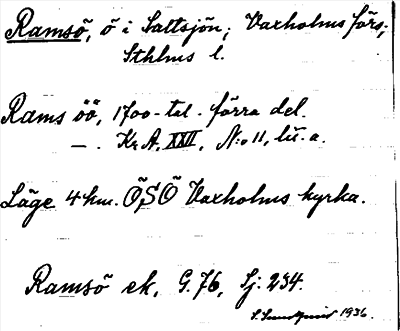 Ramsö, ö i Saltsjön; Vaxholms förs;
Sthlms l.
Rams öö, 1700-tal. förra del.
— . Kr.A. XXII, N:o 11, lit. a.
Läge 4 km. ÖSÖ Vaxholms kyrka.
Ramsö ek, G. 76, Sj: 234.
1936.